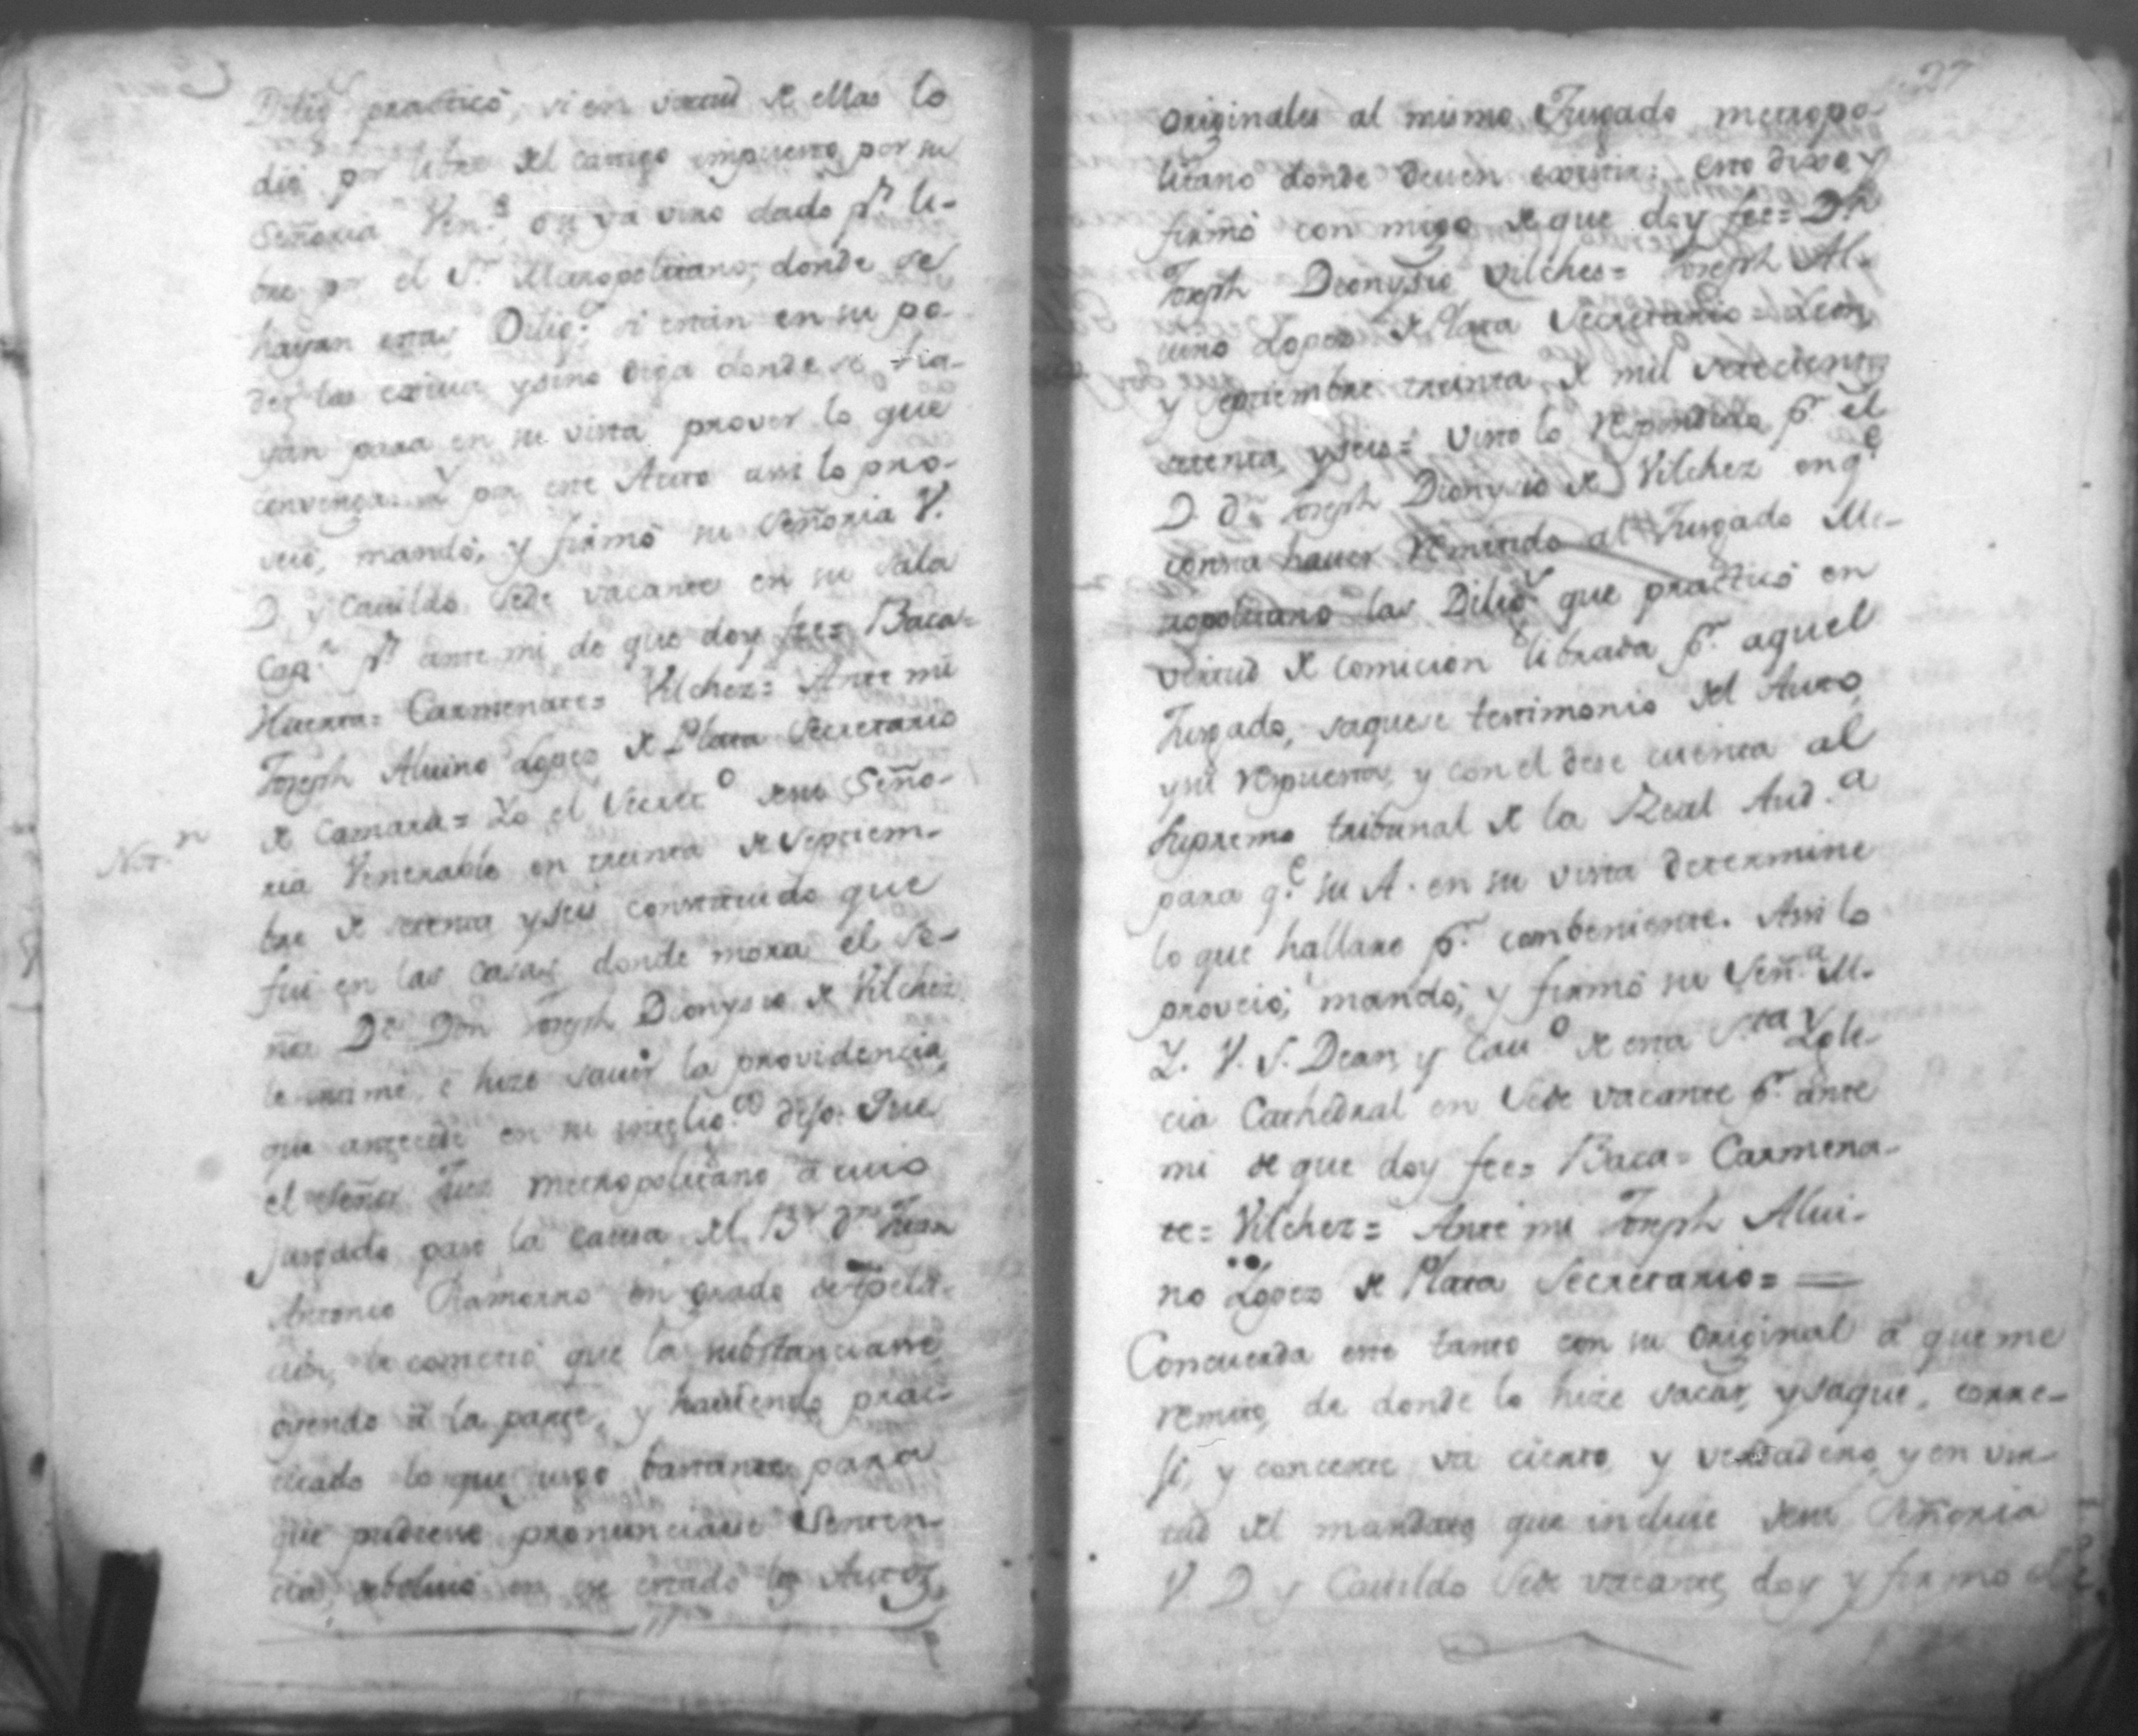 Dilig.s practicó, si en virtud de ellas lo
dió por libre del cargo impuesto por su
Señoria Ven.e o si ya vino dado p.r li-
bre por el S.r Metropolitano, donde se
hayan estas Dilig.s si estan en su po-
der las exiva y sino diga donde se ha-
yan para en su vista prover lo que
convenga: y por este Auto assi lo pro-
veió, mandó, y firmó su Señoria V.
D. y Cavildo Sede vacante en su sala
Cap.r p.r ante mi de que doy fee= Baca=
Huerta= Carmenate= Vilchez= Ante mi
Joseph Aluino Lopez de Plata Secretario
Not.n
de Camara= Yo el Secret.o de su Seño-
ria Venerable en treinta de Septiem-
bre de setenta y seis constituido que
fui en las casas donde mora el Se-
ñor D.r Don Joseph Dionysio de Vilchez
le intimé, é hize saver la providencia
que antecede en su inteli.a dijo: Que
el Señor Juez metropolitano á cuio
Jusgado pasó la causa del B.r d.n Juan
Antonio Ramorno en grado de apela-
cion, le cometió que la substanciasse
oyendo á la parte, y haviendo prac-
ticado lo que jusgó bastante para
que pudiesse pronunciarse Senten-
cia, debolvió en ese estado los Autos
27
originales al mismo Jusgado metropo-
litano donde deven existir: esto dixo y
firmó con migo de que doy fee= D.r
Joseph Dionysio Vilches= Joseph Al-
uino Lopez de Plata Secretario= Leon,
y septiembre treinta de mil setecientos
setenta, y seis= Visto lo respondido p.r el
D. d.n Joseph Dionysio de Vilchez en q.e
consta haver remitido al Jusgado Me-
tropolitano las Dilig.s que practicó en
virtud de comicion librada p.r aquel
Jusgado, saquese testimonio del Auto,
y su respuesta, y con el dese cuenta al
Supremo tribunal de la Real Aud.a
para q.e su A. en su vista determine
lo que hallare p.r combeniente. Assi lo
proveió, mandó, y firmó su Señ.a M.
Y. V. S. Dean, y Cav.o de esta S.ta Ygle-
cia Cathedral en Sede vacante p.r ante
mi de que doy fee= Baca= Carmena-
te= Vilchez= Ante mi Joseph Alui-
no Lopez de Plata Secretario= =
Concuerda este tanto con su original á que me
remito, de donde lo hize sacar, y saqué, corre-
gí, y concerté va cierto, y verdadero, y en vir-
tud del mandato que incluie de su Señoria
V. D. y Cavildo Sede vacante, doy y firmo el